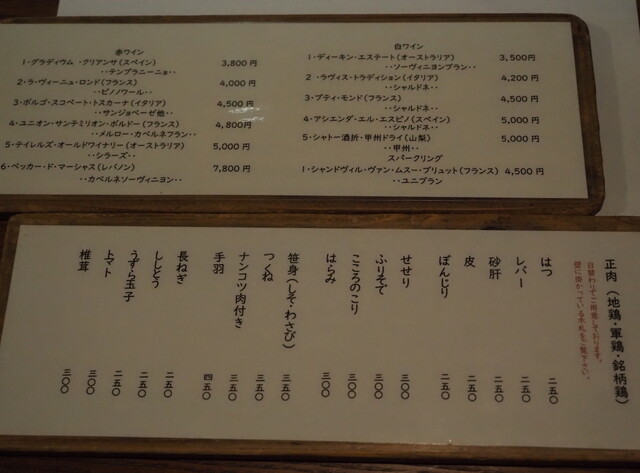 赤ワイン
1・グラディウム・クリアンサ(スペイン) 3,800円
・・テンプラニーニョ・・
2・ラ・ヴィーニュ・ロンド(フランス) 4,000円
・・ピノノワール・・
3・ボルゴ・スコペート・トスカーナ(イタリア) 4,500円
・・サンジョベーゼ他・・
4・ユニオン・サンテミリオン・ボルドー(フランス) 4,800円
・・メルロー・カベルネフラン・・
5・テイレルズ・オールドワイナリー(オーストラリア) 5,000円
・・シラーズ・・
6・ペッカー・ド・マーシャス(レバノン) 7,800円
・・カベルネソーヴィニヨン・・
白ワイン
1・ディーキン・エステート(オーストラリア) 3,500円
・・ソーヴィニヨンブラン・・
2・ラヴィス・トラディション(イタリア) 4,200円
・・シャルドネ・・
3・プティ・モンド(フランス) 4,500円
・・シャルドネ・・
4・アシエンダ・エル・エスピノ(スペイン) 5,000円
・・シャルドネ・・
5・シャトー酒折・甲州ドライ(山梨) 5,000円
・・甲州・・
スパークリング
1・シャンドヴィル・ヴァン・ムスー・ブリュット(フランス) 4,500円
・・ユニブラン
正肉(地鶏・軍鶏・銘柄鶏)
日替わりでご用意しております。
壁に掛かっている木札をご覧下さい。
はつ 二五〇
レバー 二五〇
砂肝 二五〇
皮 二五〇
ぼんじり 二五〇
せせり 三〇〇
ふりそて 三〇〇
こころのこり 三〇〇
はらみ 三〇〇
笹身(しそ・わさび) 三五〇
つくね 三五〇
ナンコツ肉付き 三五〇
手羽 四五〇
長ねぎ 二五〇
ししとう 二五〇
うずら玉子 二五〇
トマト 三〇〇
椎茸 三〇〇